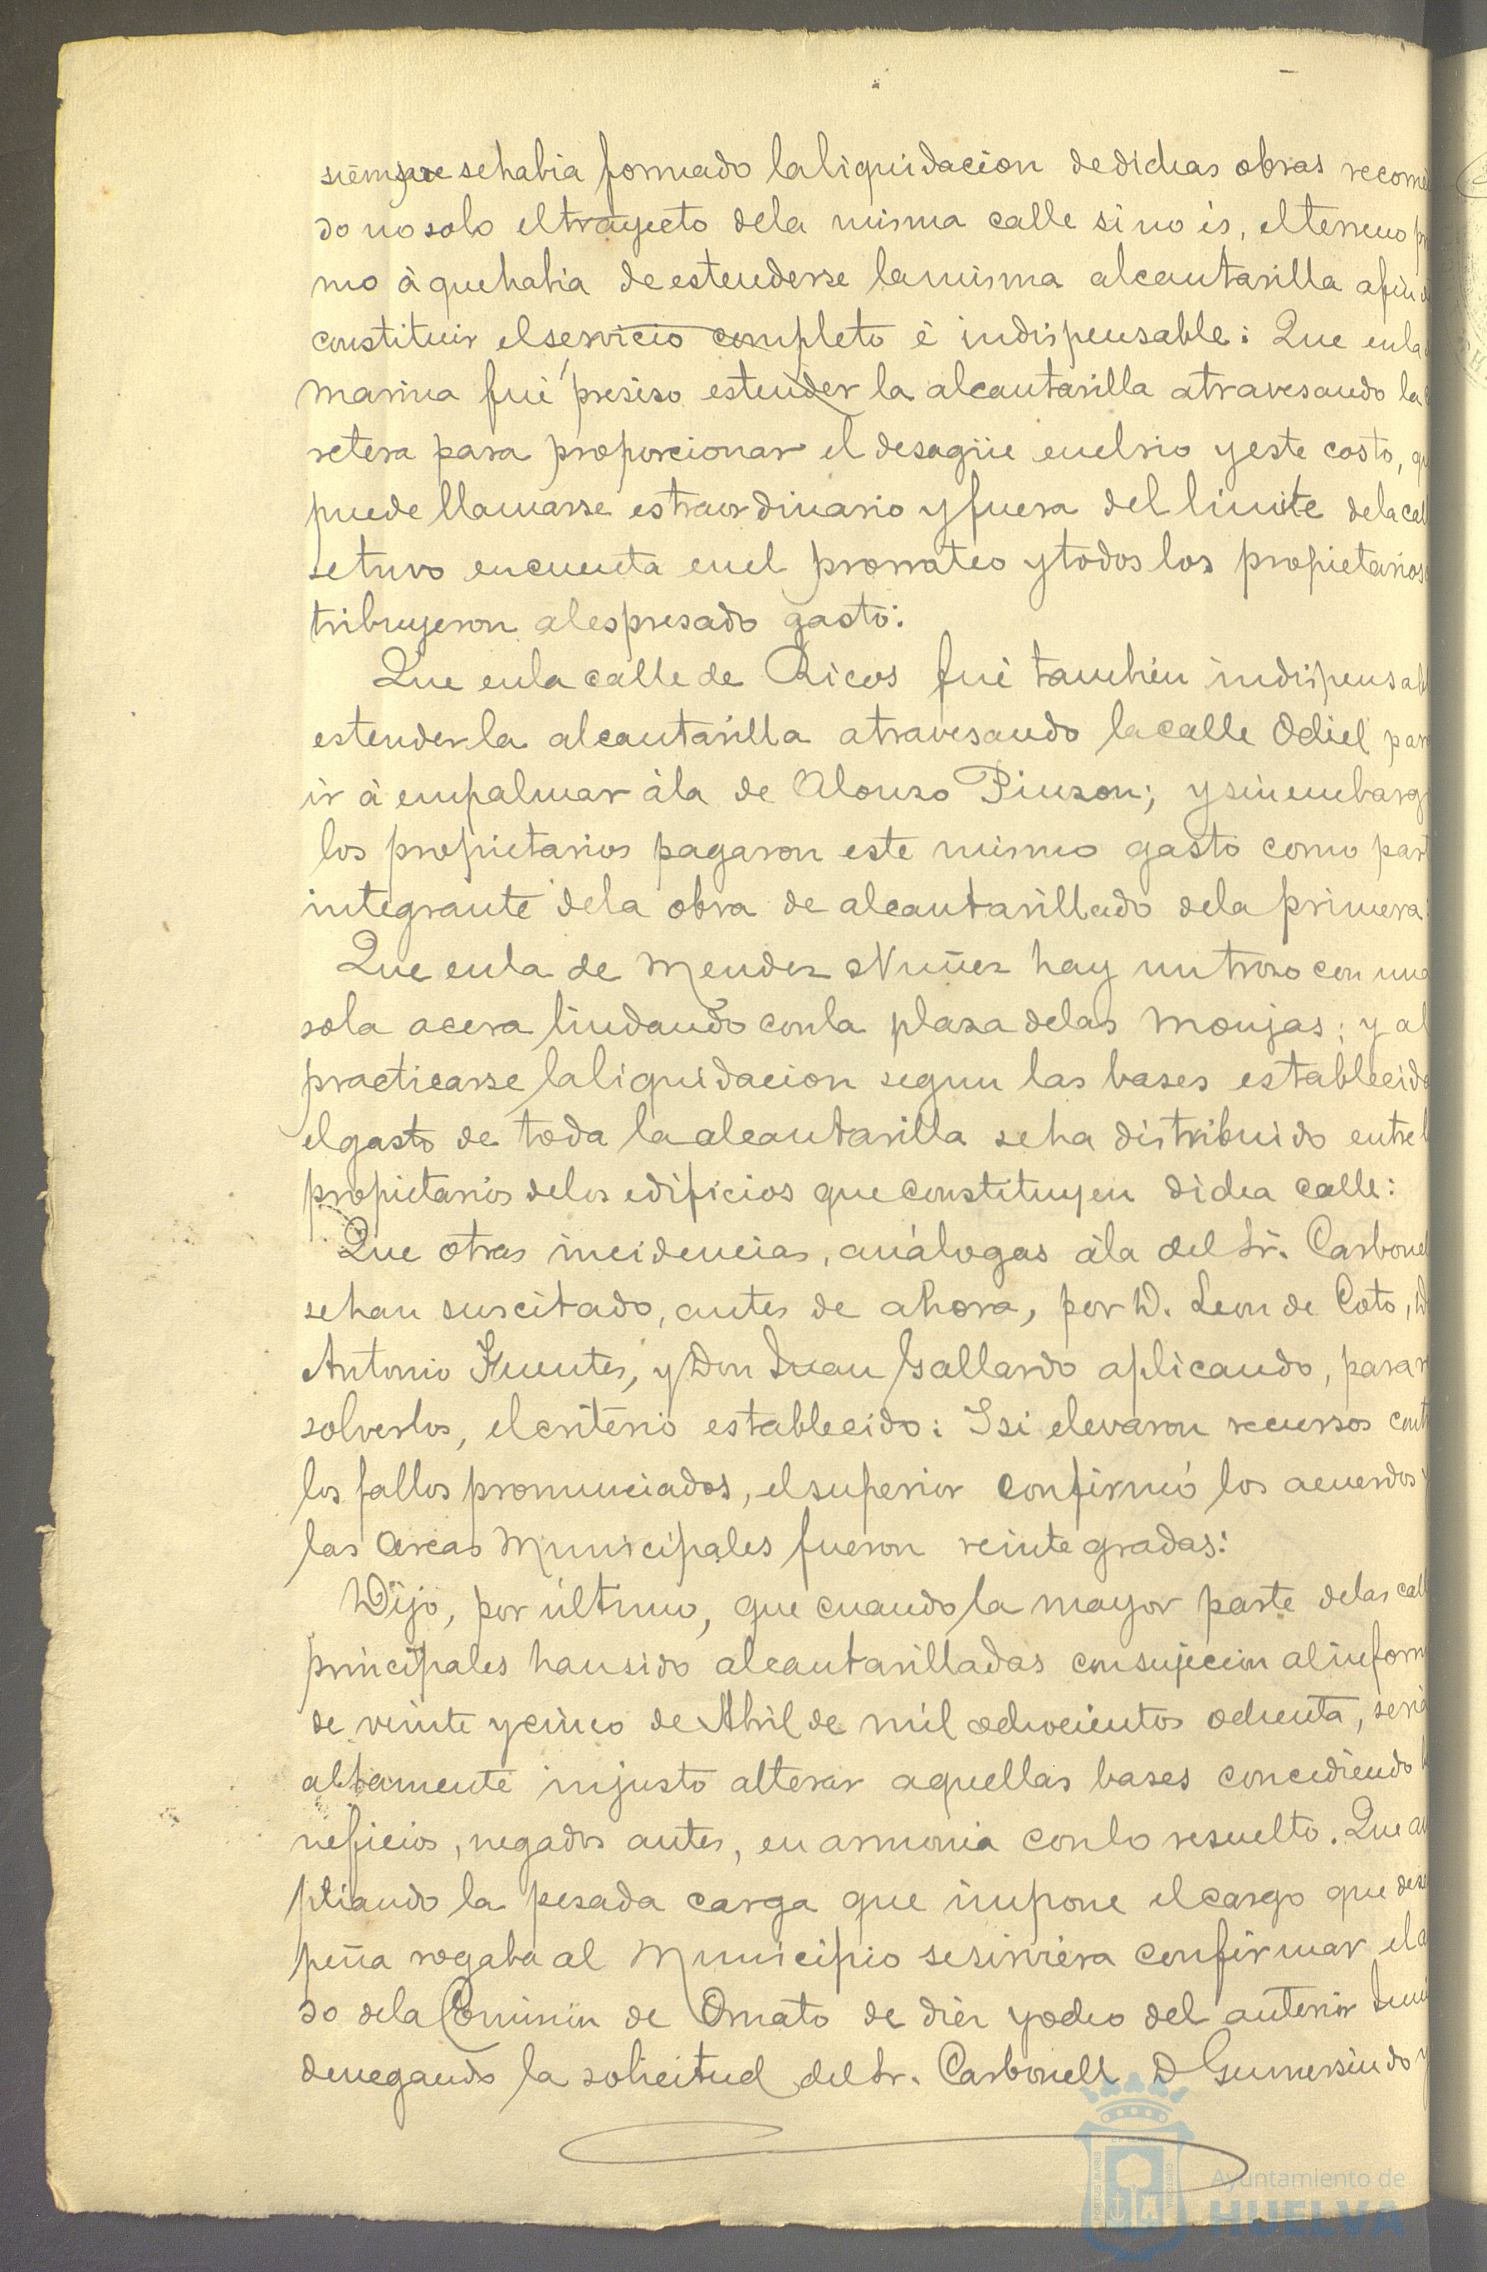 siempre se habia formado la liquidacion de dichas obras recorrien
do no solo el trayecto de la misma calle si no és, el terreno pr
mo à que habia de estenderse la misma alcantarilla afin de
constituir el servicio completo é indispensable: Que en la
Marina fué presiso estender la alcantarilla atravesando la
retera para proporcionar el desagüe en el rio y este costo, qu
puede llamarse estraordinario y fuera del limite de la cal
se tuvo en cuenta en el prorrateo y todos los propietarios
tribuyeron al espresado gasto:
Que en la calle de Ricos fué tambien indispensabl
estender la alcantarilla atravesando la calle Odiel para
ir à empalmar àla de Alonso Pinzon; y sin embargo
los propietarios pagaron este mismo gasto como part
integrante de la obra de alcantarillado de la primera:
Que en la de Mendez Nuñez hay un trozo con una
sola acera lindando con la plaza de las Monjas; y al
practicarse la liquidacion segun las bases establecida
el gasto de toda la alcantarilla se ha distribuido entre l
propietarios de los edificios que constituyen dicha calle:
Que otras incidencias, análogas àla del Sr. Carbonel
se han suscitado, antes de ahora, por D. Leon de Coto, D
Antonio Fuentes, y Don Juan Gallardo aplicando, para r
solverlos, el criterio establecido: I si elevaron recursos cont
los fallos pronunciados, el superior confirmó los acuerdos y
las Arcas Municipales fueron reintegradas:
Dijo, por último, que cuando la mayor parte de las call
principales han sido alcantarilladas con sujecion al inform
de veinte y cinco de Abril de mil ochocientos ochenta, seria
altamente injusto alterar aquellas bases concediendo b
neficios, negados antes, en armonia con lo resuelto. Que am
pliando la pesada carga que impone el cargo que desem
peña rogaba al Municipio se sirviera confirmar el a
do de la Comision de Ornato de diez y ocho del anterior Juni
denegando la solicitud del Sr. Carbonell. D Gumersindo y
Ayuntamiento de
HUELVA